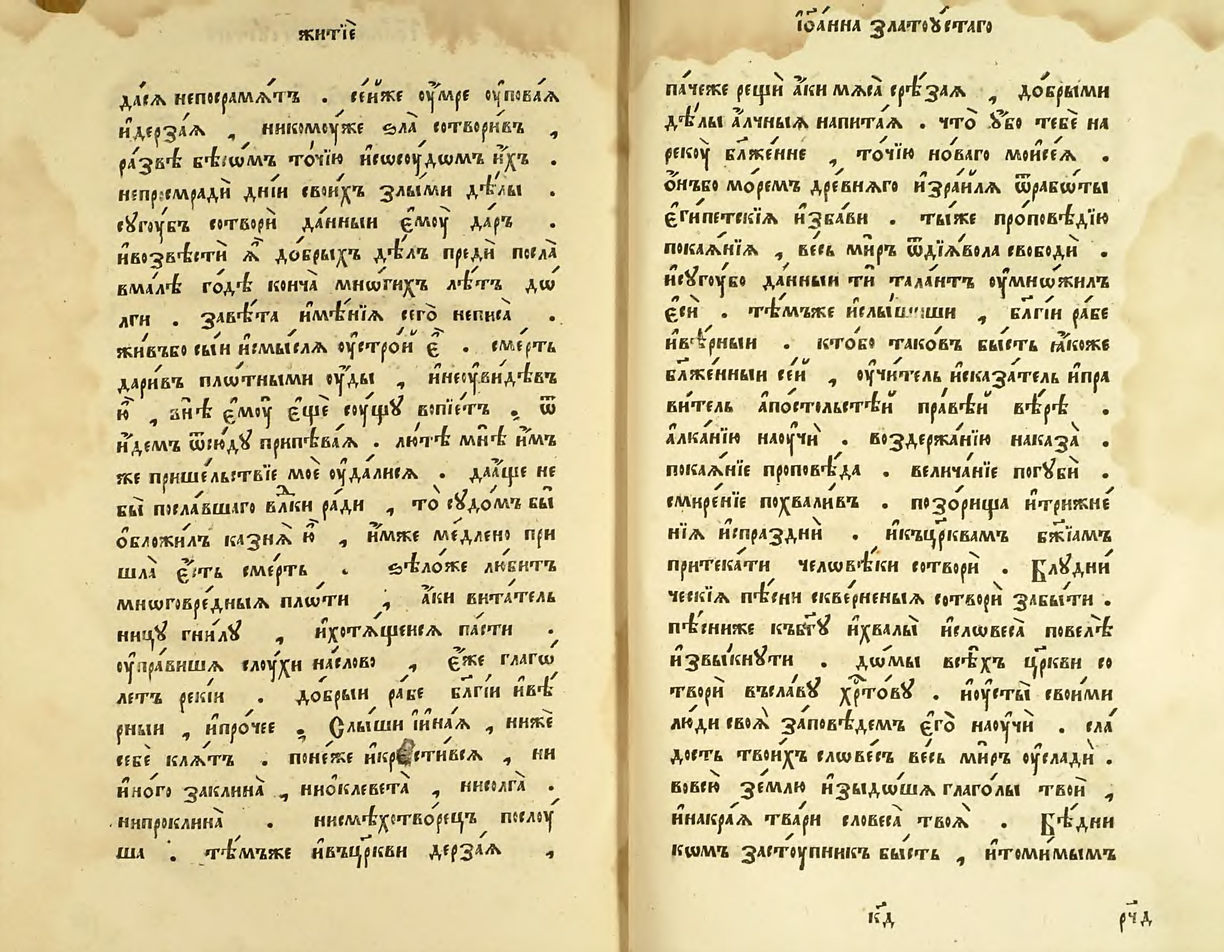 житїѐ
да́сѧ непосрамѧ́тъ . се́йже оу҆́мре оу҆пова́ѧ
и҆дерза́ѧ , никомоу́же ѕла̀ сотвори́въ ,
ра́звѣ бѣсѡ́мъ то́чїю и҆сосоу́дѡмъ и҆́хъ .
непросмрадѝ дні́и свои́хъ злы́ми дѣ́лы .
сꙋгоу́бъ сотворѝ да́нныи є҆моу̀ да́ръ .
и҆возвѣстѝ ꙗ҆̀ до́брыхъ дѣ́лъ предѝ посла̀
вма́лѣ го́дѣ конча̀ мнѡ́гихъ лѣ́тъ дѡ
лги . завѣ́та и҆мѣ́нїѧ сего̀ неписа̀ .
жи́въбо сы́и и҆смы́слѧ оу҆стро́й є҆̀ . сме́рть
дари́въ пло́тными оу҆́ды , и҆неоу҆ви́дѣвъ
ю҆̀ , внѣ̀ є҆моу̀ є҆щѐ соу́щꙋ вопїе́тъ . ѿ
и҆́демъ ѿсю́дꙋ припѣва́ѧ . лю́тѣ мнѣ̀ и҆́мъ
же прише́льствїе моѐ оу҆дали́сѧ . даа҆́ще не
бы̀ посла́вшаго влⷣки ра́ди , то̀ сꙋдо́мъ бы̀
ѡ҆бложи́лъ ка́знѧ ю҆̀ , и҆́мже ме́длено при
шла̀ є҆́сть сме́рть . ѕѣло́же лю́битъ
мнѡговре́дныѧ пло́ти , а҆́ки вита́тель
ницꙋ гни́лꙋ , и҆хотѧ́щеисѧ па́сти .
оу҆пра́вишѧ слоу́хи на́слово , є҆́же глаго́
летъ реки́и . до́брыи ра́бе бл҃гі́и и҆вѣ́
рныи , и҆про́чее . Слы́ши і҆и҆на́ѧ , ниже́
себѐ клѧ́тъ . поне́же и҆крести́всѧ , ни
и҆но́го заклина̀ , ниѡ҆клевета̀ , нисолга̀ .
нипроклина̀ . нисмѣхотво́рецъ послоу́
ша . тѣ́мъже и҆въцр҃кви дерза́ѧ ,
і҆ѡа́нна златоꙋ́стаго
па́чеже рещѝ а҆́ки мѧса̀ срѣ́заѧ , до́брыми
дѣ́лы а҆́лчныѧ напита́ѧ . что̀ ᲂу҆́бо тебѐ на
рекоу̀ бл҃же́нне , то́чїю но́ваго моисе́ѧ .
ѻ҆́нъбо мо́ремъ дре́внѧго и҆зра́илѧ ѿрабо́ты
є҆ги́петскїѧ и҆зба́ви . ты́же про́повѣдїю
покаѧ́нїѧ , ве́сь ми́ръ ѿдїѧ́вола свободѝ .
и҆сꙋгоу́бо да́нныи тѝ тала́нтъ оу҆мно́жилъ
є҆сѝ . тѣ́мъже и҆слы́шиши , бл҃гі́и ра́бе
и҆вѣ́рныи . кто́бо тако́въ бы́сть ꙗ҆́коже
бл҃же́нныи се́й , оу҆чи́тель и҆сказа́тель и҆пра
ви́тель а҆посто́льстѣй пра́вѣй вѣ́рѣ .
а҆лка́нїю наоу҆чѝ . воздержа́нїю наказа̀ .
покаѧ́нїе проповѣ́да . велича́нїе погꙋбѝ .
смире́нїе похвали́въ . позо́рища и҆тризне́
нїѧ и҆спразднѝ . и҆къцр҃квамъ бж҃їамъ
притека́ти человѣ́ки сотворѝ . Блꙋдни́
ческїѧ пѣ́сни скве́рненыѧ сотворѝ забы́ти .
пѣ́сниже къбг҃ꙋ и҆хвалы̀ и҆словеса̀ повелѣ̀
и҆звы́кнꙋти . до́мы всѣ́хъ цр҃кви со
творѝ въсла́вꙋ хрⷭ҇то́вꙋ . и҆оу҆сты̀ свои́ми
лю́ди своѧ̀ за́повѣдемъ є҆го̀ наоу҆чѝ . сла́
дость твои́хъ слове́съ ве́сь ми́ръ оу҆сладѝ .
вовсю̀ зе́млю и҆зыдо́шѧ глаго́лы твоѝ ,
и҆накра́ѧ тва́ри словеса̀ твоѧ̀ . Бѣ́дни
комъ засто́упникъ бы́сть , и҆томи́мымъ
к҃д
рч҃д